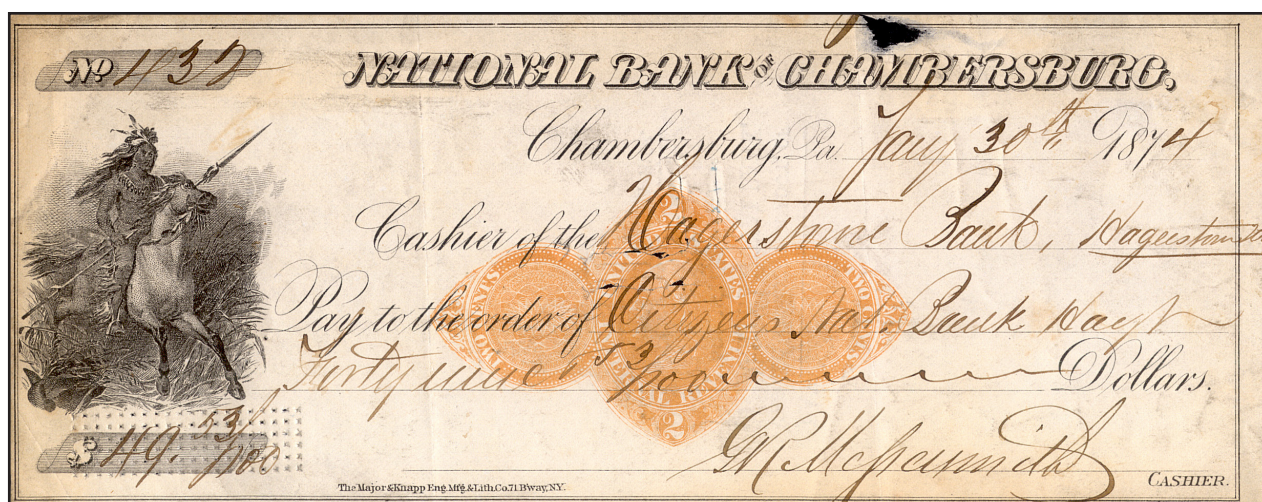 No 432
NATIONAL BANK OF CHAMBERSBURG,
Chambersburg, Pa. Jany 30th 1874
Cashier of the Hagerstone Bank, Hagerstown
Pay to the order of Citizens Nat. Bank Hagt
Forty nine & 53/100 Dollars.
$ 49.53/100
CASHIER.
The Major & Knapp Eng. Mfg. & Lith. Co. 71 B'way, N.Y.
UNITED STATES
INTERNAL REVENUE
TWO CENTS
TWO CENTS
2
2